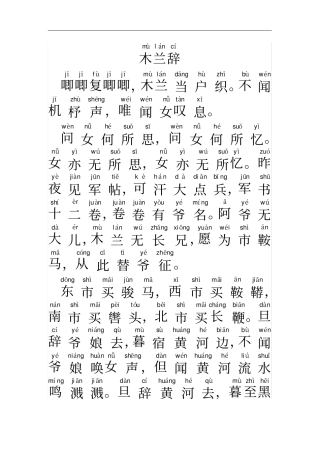 mù lán cí
木兰辞
jī jī fù jī jī mù lán dāng hù zhī bù wén
唧唧复唧唧,木兰当户织。不闻
jī zhù shēng wéi wén nǚ tàn xī
机杼声,唯闻女叹息。
wèn nǚ hé suǒ sī wèn nǚ hé suǒ yì
问女何所思,问女何所忆。
nǚ yì wú suǒ sī nǚ yì wú suǒ yì zuó
女亦无所思,女亦无所忆。昨
yè jiàn jūn tiě kè hán dà diǎn bīng jūn shū
夜见军帖,可汗大点兵,军书
shí èr juàn juàn juàn yǒu yé míng ā yé wú
十二卷,卷卷有爷名。阿爷无
dà ér mù lán wú zhǎng xiōng yuàn wéi shì ān
大儿,木兰无长兄,愿为市鞍
mǎ cóng cǐ tì yé zhēng
马,从此替爷征。
dōng shì mǎi jùn mǎ xī shì mǎi ān jiān
东市买骏马,西市买鞍鞯,
nán shì mǎi pèi tóu běi shì mǎi cháng biān dàn
南市买辔头,北市买长鞭。旦
cí yé niáng qù mù sù huáng hé biān bù wén
辞爷娘去,暮宿黄河边,不闻
yé niáng huàn nǚ shēng dàn wén huáng hé liú shuǐ
爷娘唤女声,但闻黄河流水
míng jiān jiān dàn cí huáng hé qù mù zhì hēi
鸣溅溅。旦辞黄河去,暮至黑